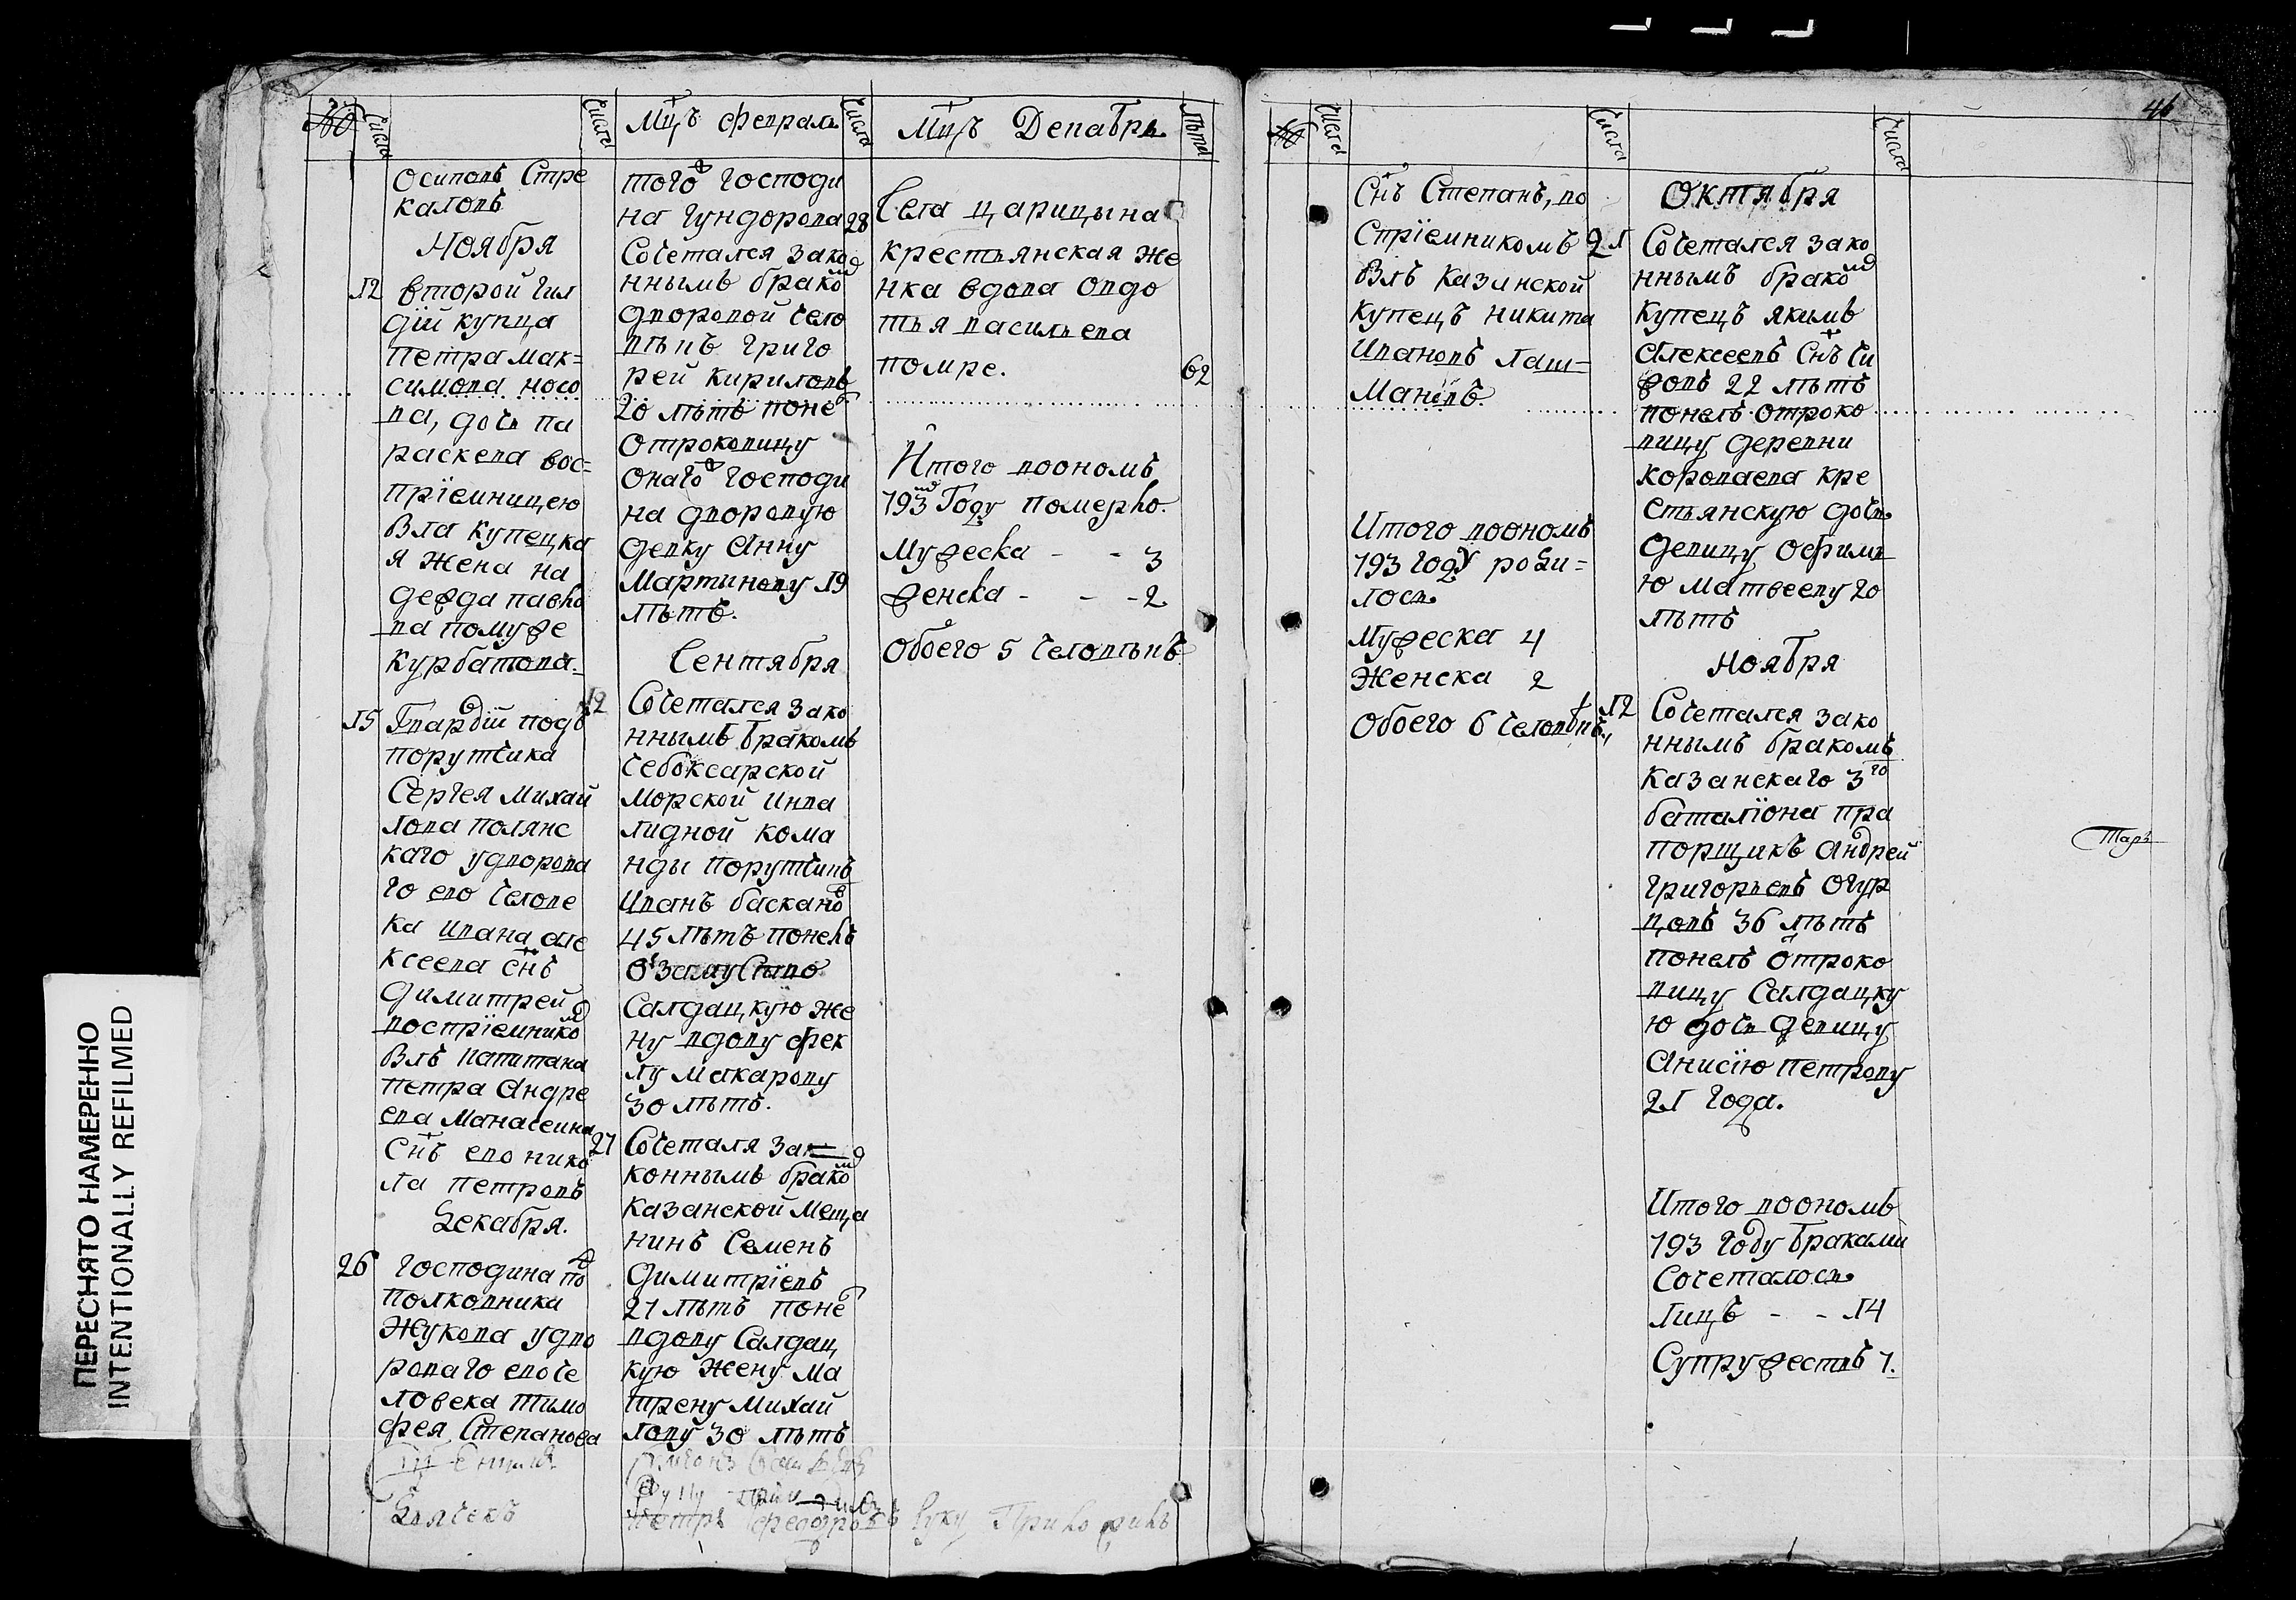 №
Числа
Осиповъ Стре
каловъ
Ноября
12
второй гил
дїи купца
Петра Мак=
симова носо
ва, дочь па
раскева вос=
прїемницею
Бла купецка
я жена на
дежда павло
ва помуже
Курбатова.
15
Гвардїи подъ
порутчика
Сергея Михай
лова полянс
каго удворова
го ево челове
ка Ивана але
ксеева снъ
Димитрей
вострїемнико
Блъ капитана
петра Андре
ева Маначеина
Снъ ево нико
ла петровъ
Декабря.
26
Господина по
полковника
Жукова удво
роваго евоче
ловека тимо
фея Степанова
Дьячекъ
Числа
Мцъ февраль
того господи
на гундорова
Сочетался зако
ннымъ брако
дворовой чело
вѣкъ григо
рей кириловъ
20 лѣтъ поне
Отроковицу
Онаго господи
на дворовую
девку Анну
Мартинову 19
лѣтъ.
Сентября
12
Сочетался зако
ннымъ бракомъ
чебоксарской
морской инва
лидной кома
нды порутчикъ
Иванъ баскако
45 лѣтъ понелъ
Салдацкую же
ну вдову фек
лу макарову
30 лѣтъ.
27
Сочеталя зак
коннымъ брако
казанской меща
нинъ Семенъ
Димитрїевъ
27 лѣтъ поне
вдову Салдац
кую жену ма
трену михай
лову 30 лѣтъ
петръ федоровъ руку приложилъ
Числа
Мцъ Декабрь
Лѣта
28
Села царицына
крестьянская же
нка вдова овдо
тья васильева
помре.
62
Итого воономъ
793 году померло.
Мужеска - - 3
женска - - - 2
Обоего 5 человѣкъ
46
№
Числа
Снъ Степанъ, во
стрїемникомъ
Блъ казанской
купецъ никита
Ивановъ лаш=
Мановъ.
Итого воономъ
793 году роди=
лось
Мужеска 4
Женска 2
Обоего 6 человѣкъ,
Числа
Октября
21
Сочетался зако
ннымъ брако
купецъ якимъ
алексеевъ снъ чи
жовъ 22 лѣтъ
понелъ отроко
вицу деревни
короваева кре
стьянскую дочь
девицу офимь
ю матвееву 20
лѣтъ
Ноября
12
Сочетался зако
ннымъ бракомъ
казанскаго 3го
баталїона пра
порщикъ андрей
григорьевъ огур
цовъ 36 лѣтъ
понелъ отроко
вицу Салдацку
ю дочь девицу
анисїю петрову
21 года.
Итого воономъ
793 году браками
Сочеталось
лицъ - - 14
Супружествъ 7.
Числа
ПЕРЕСНЯТО НАМЕРЕННО
INTENTIONALLY REFILMED